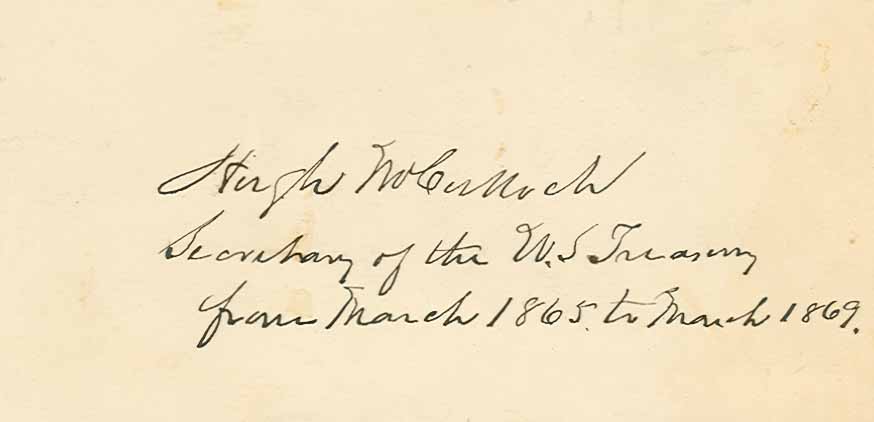 Hugh McCulloch
Secretary of the U.S Treasury
from March 1865. to March 1869.